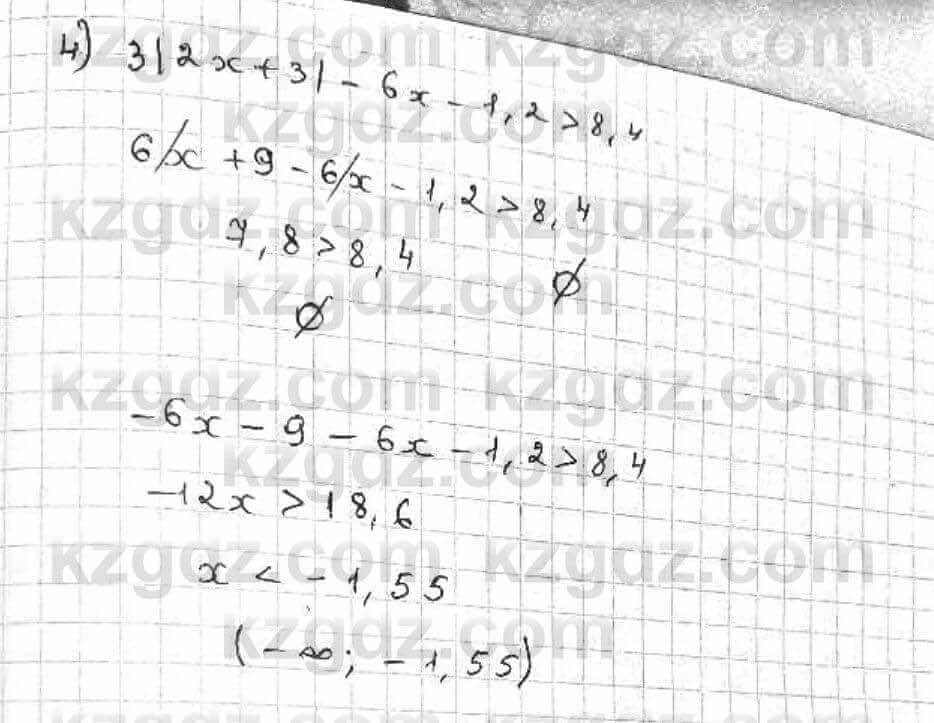 4) 3|2x+3| - 6x - 1,2 > 8,4
6x + 9 - 6x - 1,2 > 8,4
7,8 > 8,4 ∅
∅
-6x - 9 - 6x - 1,2 > 8,4
-12x > 18,6
x < -1,55
(-∞; -1,55)
kzgdz.com kzgdz.com
kzgdz.com
kzgdz.com kzgdz.com
kzgdz.com
kzgdz.com kzgdz.com
kzgdz.com
kzgdz.com kzgdz.com
kzgdz.com